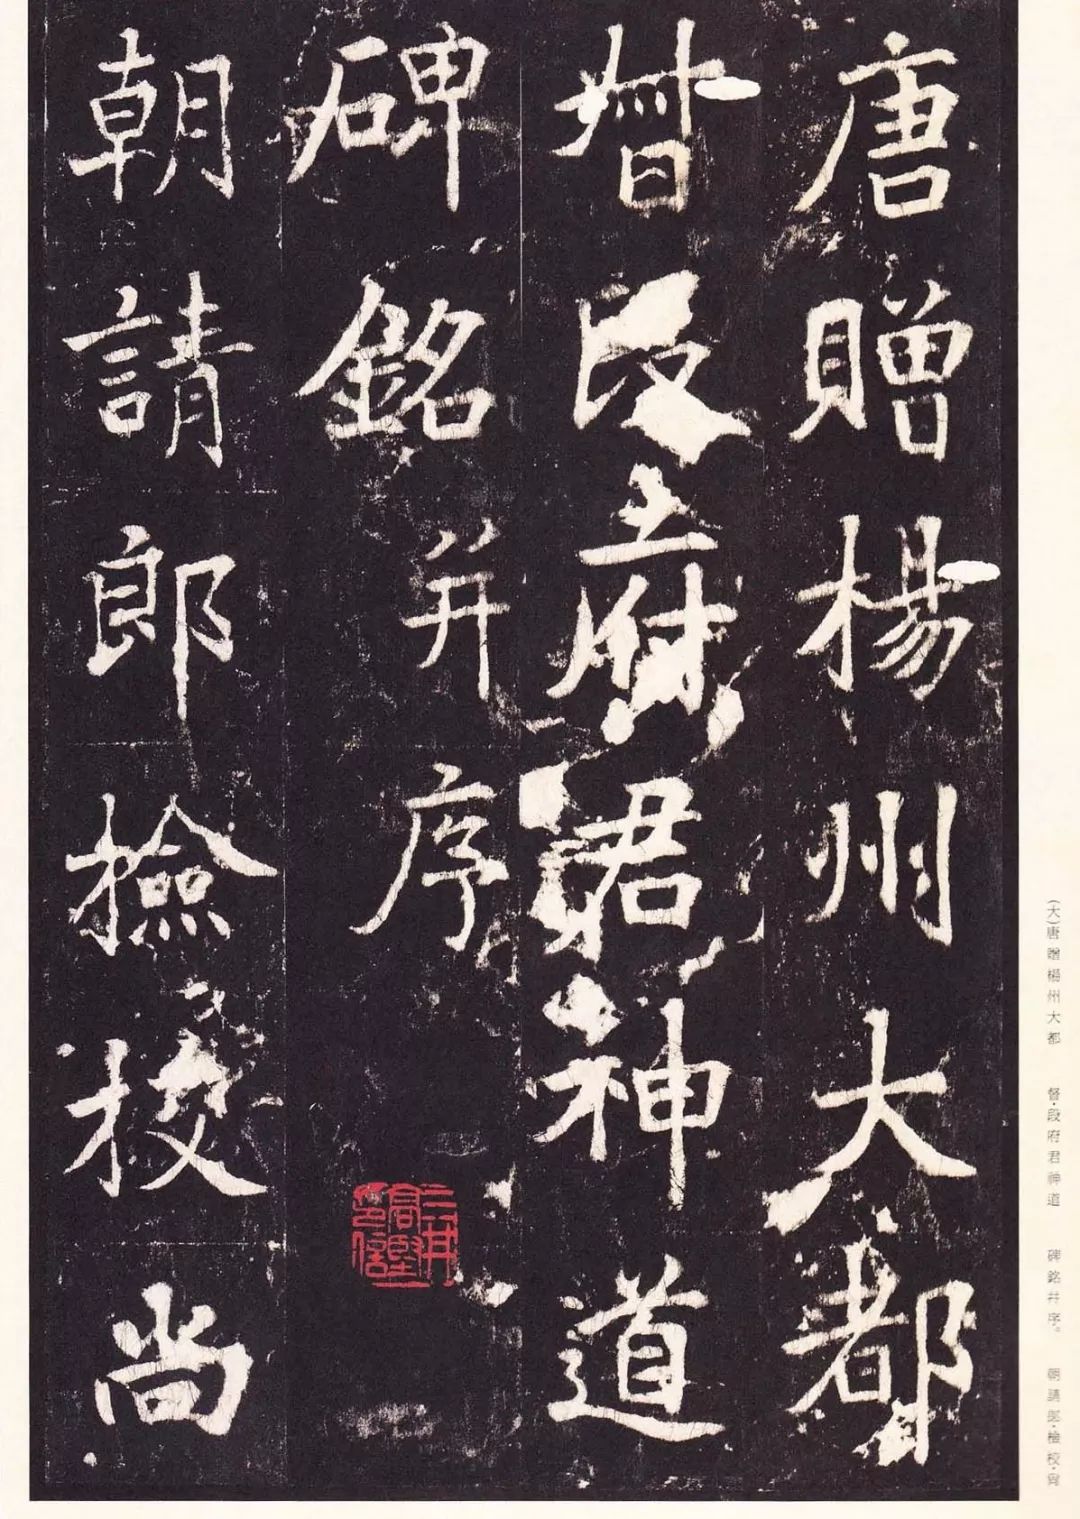 唐贈楊州大都
督段府君神道
碑銘并序
朝請郎撿挍尚
三井高堅信
(大)唐贈楊州大都 督·段府君神道 碑銘并序。 朝請郎·檢校·尙